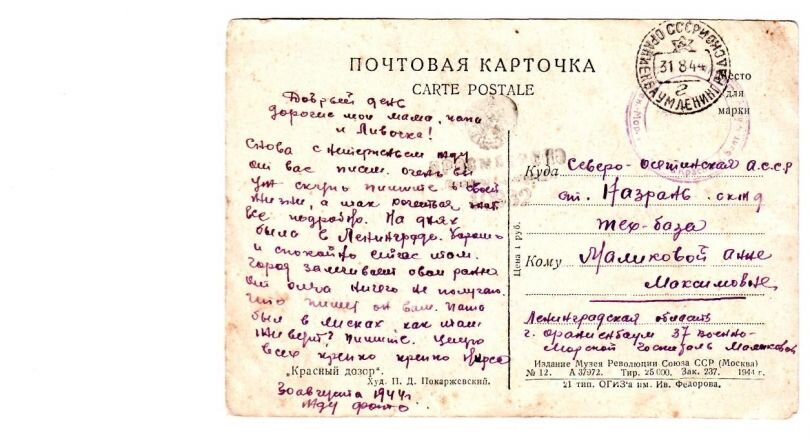 ПОЧТОВАЯ КАРТОЧКА
CARTE POSTALE
Место
для
марки
СССР ОРАНИЕНБАУМ ЛЕНИНГРАДСКОЙ
31 8 44
г
Добрый день
дорогие мои мама, папа
и Ливочка!
Снова с нетерпеньем жду
от вас писем. очень вы
уж скупо пишите о своей
жизни, а мне хочется знать
все подробно. На днях
была в Ленинграде. Хорошо
и спокойно сейчас там.
город залечивает свои раны
от отца ничего не получаю.
что пишет он вам. Папа
был в
пишите. Целую
всех крепко крепко
30 августа 1944 г.
жду фото.
"Красный дозор".
Худ. П. Д. Покаржевский.
Цена 1 руб.
Куда Северо-осетинская А.С.С.Р
ст. Назрань склад
тех-база
Кому Маликовой Анне
Максимовне,
Ленинградская область
г. Ораниенбаум 37 военно-
морской госпиталь Маликовой
Издание Музея Революции Союза ССР (Москва)
№ 12. А 37972. Тир. 25 000. Зак. 237. 1944 г.
21 тип. ОГИЗ'а им. Ив. Федорова.